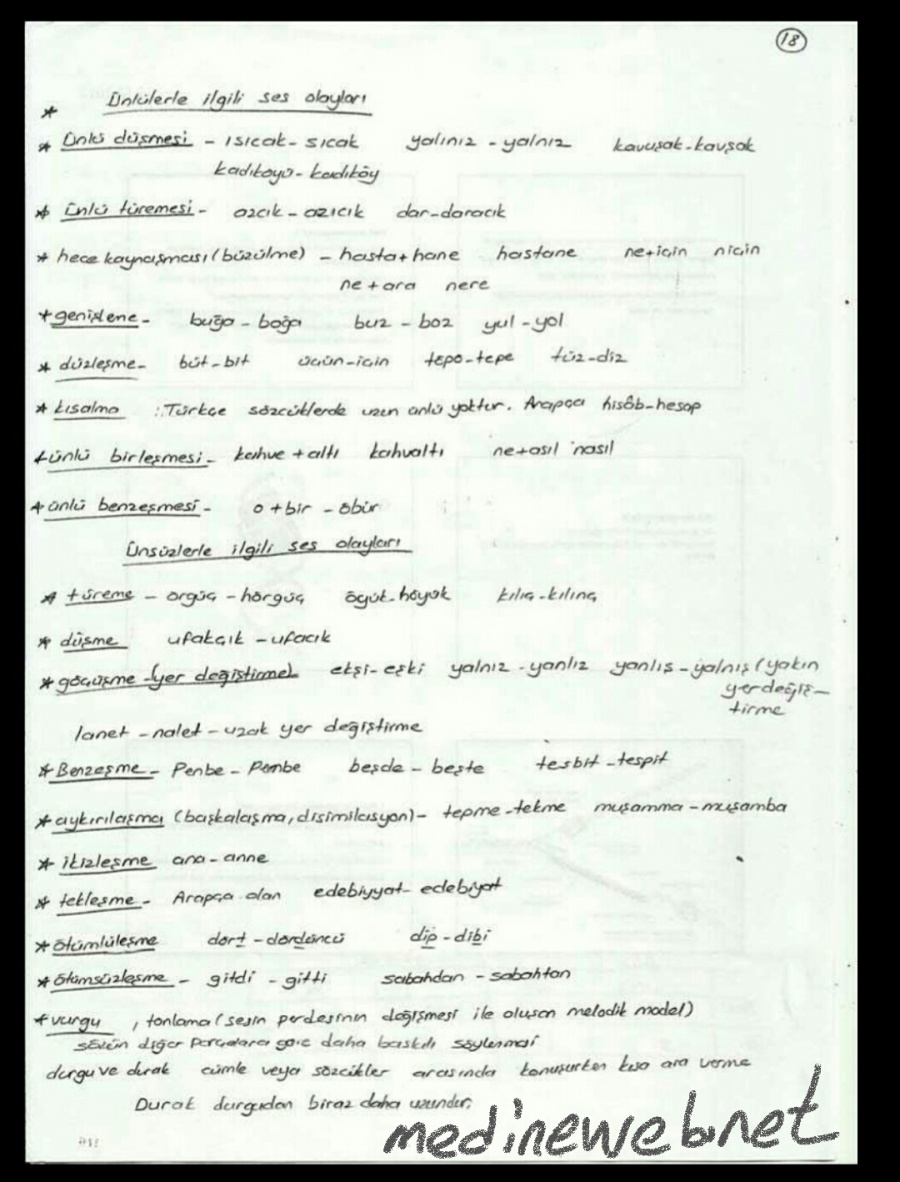 18
* Ünlülerle ilgili ses olayları
* Ünlü düşmesi - ısıcak - sıcak yalınız - yalnız kavuşak - kavşak
kadıkoyü - kadıköy
* ünlü türemesi - azcık - azıcık dar - daracık
* hece kaynaşması (büzülme) - hasta + hane hastane ne + için niçin
ne + ara nere
* genişleme - buğa - boğa buz - boz yul - yol
* düzleşme - büt - bit üçün - için tepo - tepe tüz - diz
* kısalma : Türkçe sözcüklerde uzun ünlü yoktur. Arapça hisâb - hesap
* ünlü birleşmesi - kahve + altı kahvaltı ne + asıl nasıl
* ünlü benzeşmesi - o + bir - öbür
Ünsüzlerle ilgili ses olayları
* türeme - örgüç - hörgüç öyük - höyük kılıç - kılınç
* düşme ufakçık - ufacık
* göçüşme - (yer değiştirme) ekşi - eşki yalnız - yanlız yanlış - yalnış (yakın
yer değiş -
tirme
lanet - nalet - uzak yer değiştirme
* Benzeşme - Penbe - Pembe beşde - beşte tesbit - tespit
* aykırılaşma (başkalaşma, disimilasyon) - tepme - tekme muşamma - muşamba
* ikizleşme ana - anne
* tekleşme - Arapça olan edebiyyat - edebiyat
* ötümlüleşme dört - dördüncü dip - dibi
* ötümsüzleşme - gitdi - gitti sabahdan - sabahtan
* vurgu , tonlama (sesin perdesinin değişmesi ile oluşan melodik model)
sözün diğer parçalara göre daha baskılı söylenmesi
durgu ve durak cümle veya sözcükler arasında konuşurken kısa ara verme
Durak durgudan biraz daha uzundur.
medineweb.net